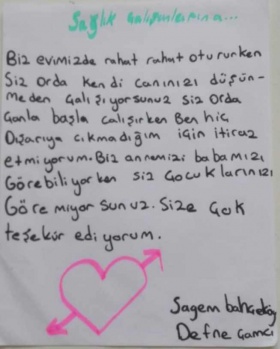 Sağlık Çalışanlarına...
Biz evimizde rahat rahat otururken
Siz orda kendi canınızı düşün-
meden çalışıyorsunuz siz orda
Canla başla çalışırken Ben hiç
Dışarıya çıkmadığım için itiraz
etmiyorum. Biz annemizi babamızı
Görebiliyorken siz çocuklarınızı
Göremiyorsunuz. Size çok
teşekür ediyorum.
Defne